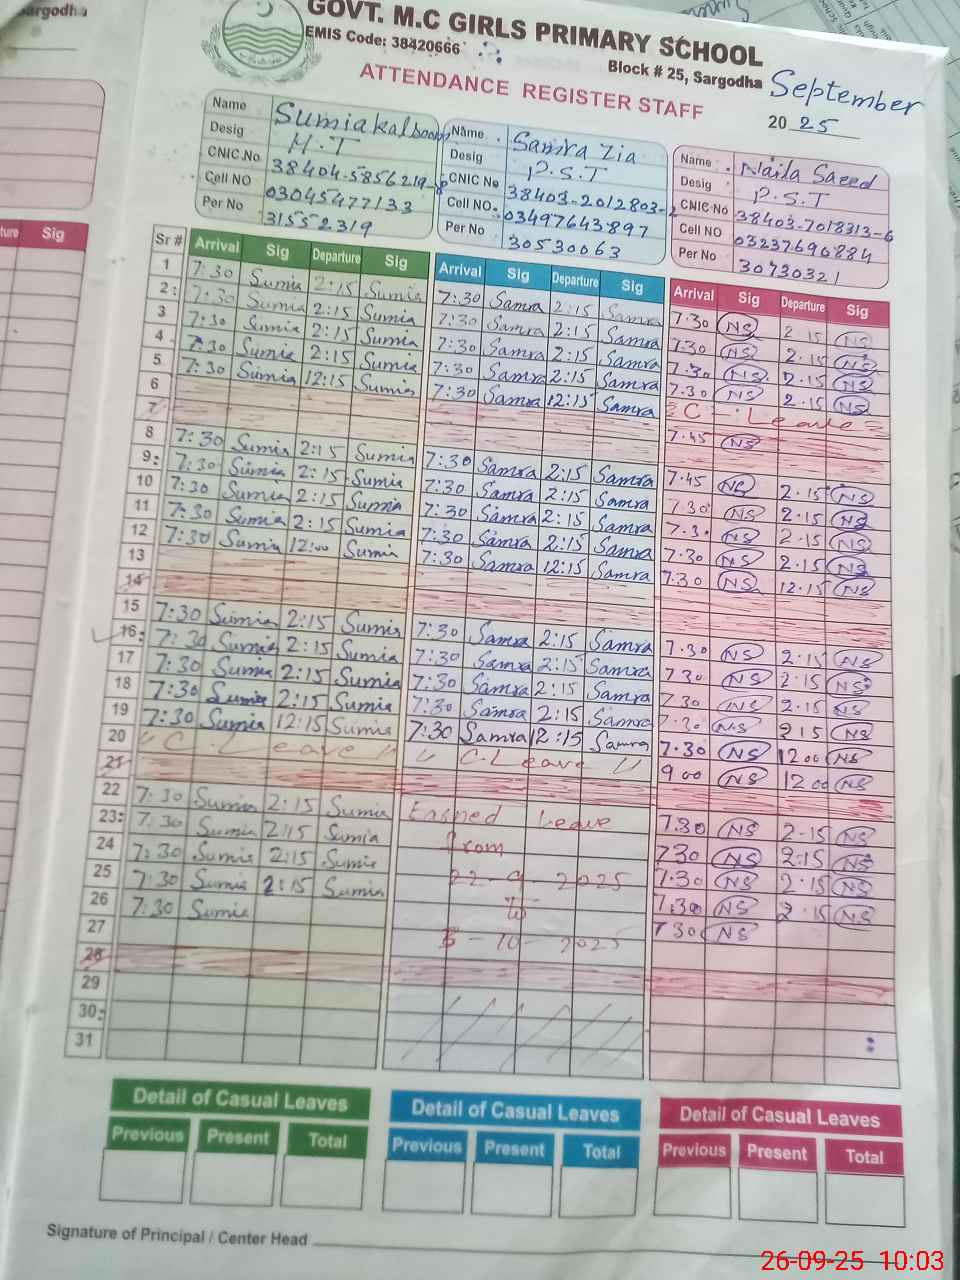 argodha
GOVT. M.C GIRLS PRIMARY SCHOOL
EMIS Code: 38420666
Block # 25, Sargodha
ATTENDANCE REGISTER STAFF
September
20 25
Name Sumiakalsoom
Desig H.T
CNIC.No 38404-5856219-8
Cell NO 03045477133
Per No 31552319
Name Samra Zia
Desig P.S.T
CNIC No 38403-2012803-2
Cell NO. 03497643897
Per No 30530063
Name Naila Saeed
Desig P.S.T
CNIC No 38403-7018313-6
Cell NO 03237690884
Per No 30730321
ture Sig
Sr # Arrival Sig Departure Sig Arrival Sig Departure Sig Arrival Sig Departure Sig
1 7:30 Sumia 2:15 Sumia 7:30 Samra 2:15 Samra 7.30 NS 2.15 NS
2 7:30 Sumia 2:15 Sumia 7:30 Samra 2:15 Samra 7.30 NS 2.15 NS
3 7:30 Sumia 2:15 Sumia 7:30 Samra 2:15 Samra 7.30 NS 2.15 NS
4 7:30 Sumia 2:15 Sumia 7:30 Samra 2:15 Samra 7.30 NS 2.15 NS
5 7:30 Sumia 12:15 Sumia 7:30 Samra 12:15 Samra C. Leave
6
7
8 7:30 Sumia 2:15 Sumia 7:30 Samra 2:15 Samra 7.45 NS 2.15 NS
9 7:30 Sumia 2:15 Sumia 7:30 Samra 2:15 Samra 7.30 NS 2.15 NS
10 7:30 Sumia 2:15 Sumia 7:30 Samra 2:15 Samra 7.3. NS 2.15 NS
11 7:30 Sumia 2:15 Sumia 7:30 Samra 2:15 Samra 7.30 NS 2.15 NS
12 7:30 Sumia 12:00 Sumia 7:30 Samra 12:15 Samra 7.30 NS 12.15 NS
13
14
15 7:30 Sumia 2:15 Sumia 7:30 Samra 2:15 Samra 7.30 NS 2:15 NS
16 7:30 Sumia 2:15 Sumia 7:30 Samra 2:15 Samra 7.30 NS 2.15 NS
17 7:30 Sumia 2:15 Sumia 7:30 Samra 2:15 Samra 7.30 NS 2.15 NS
18 7:30 Sumia 2:15 Sumia 7:30 Samra 2:15 Samra 7.30 NS 2 15 NS
19 7:30 Sumia 12:15 Sumia 7:30 Samra 12:15 Samra 7.30 NS 12 00 NS
20 " C. Leave " " C. Leave " 9 00 NS 12 00 NS
21
22 7:30 Sumia 2:15 Sumia Earned Leave 7.30 NS 2.15 NS
23 7:30 Sumia 2:15 Sumia from 7 30 NS 2:15 NS
24 7:30 Sumia 2:15 Sumia 22-9-2025 7.30 NS 2.15 NS
25 7:30 Sumia 2:15 Sumia to 7.30 NS 2.15 NS
26 7:30 Sumia -10-2025 7 30 NS
27
28
29
30
31
Detail of Casual Leaves Detail of Casual Leaves Detail of Casual Leaves
Previous Present Total Previous Present Total Previous Present Total
Signature of Principal / Center Head
26-09-25 10:03